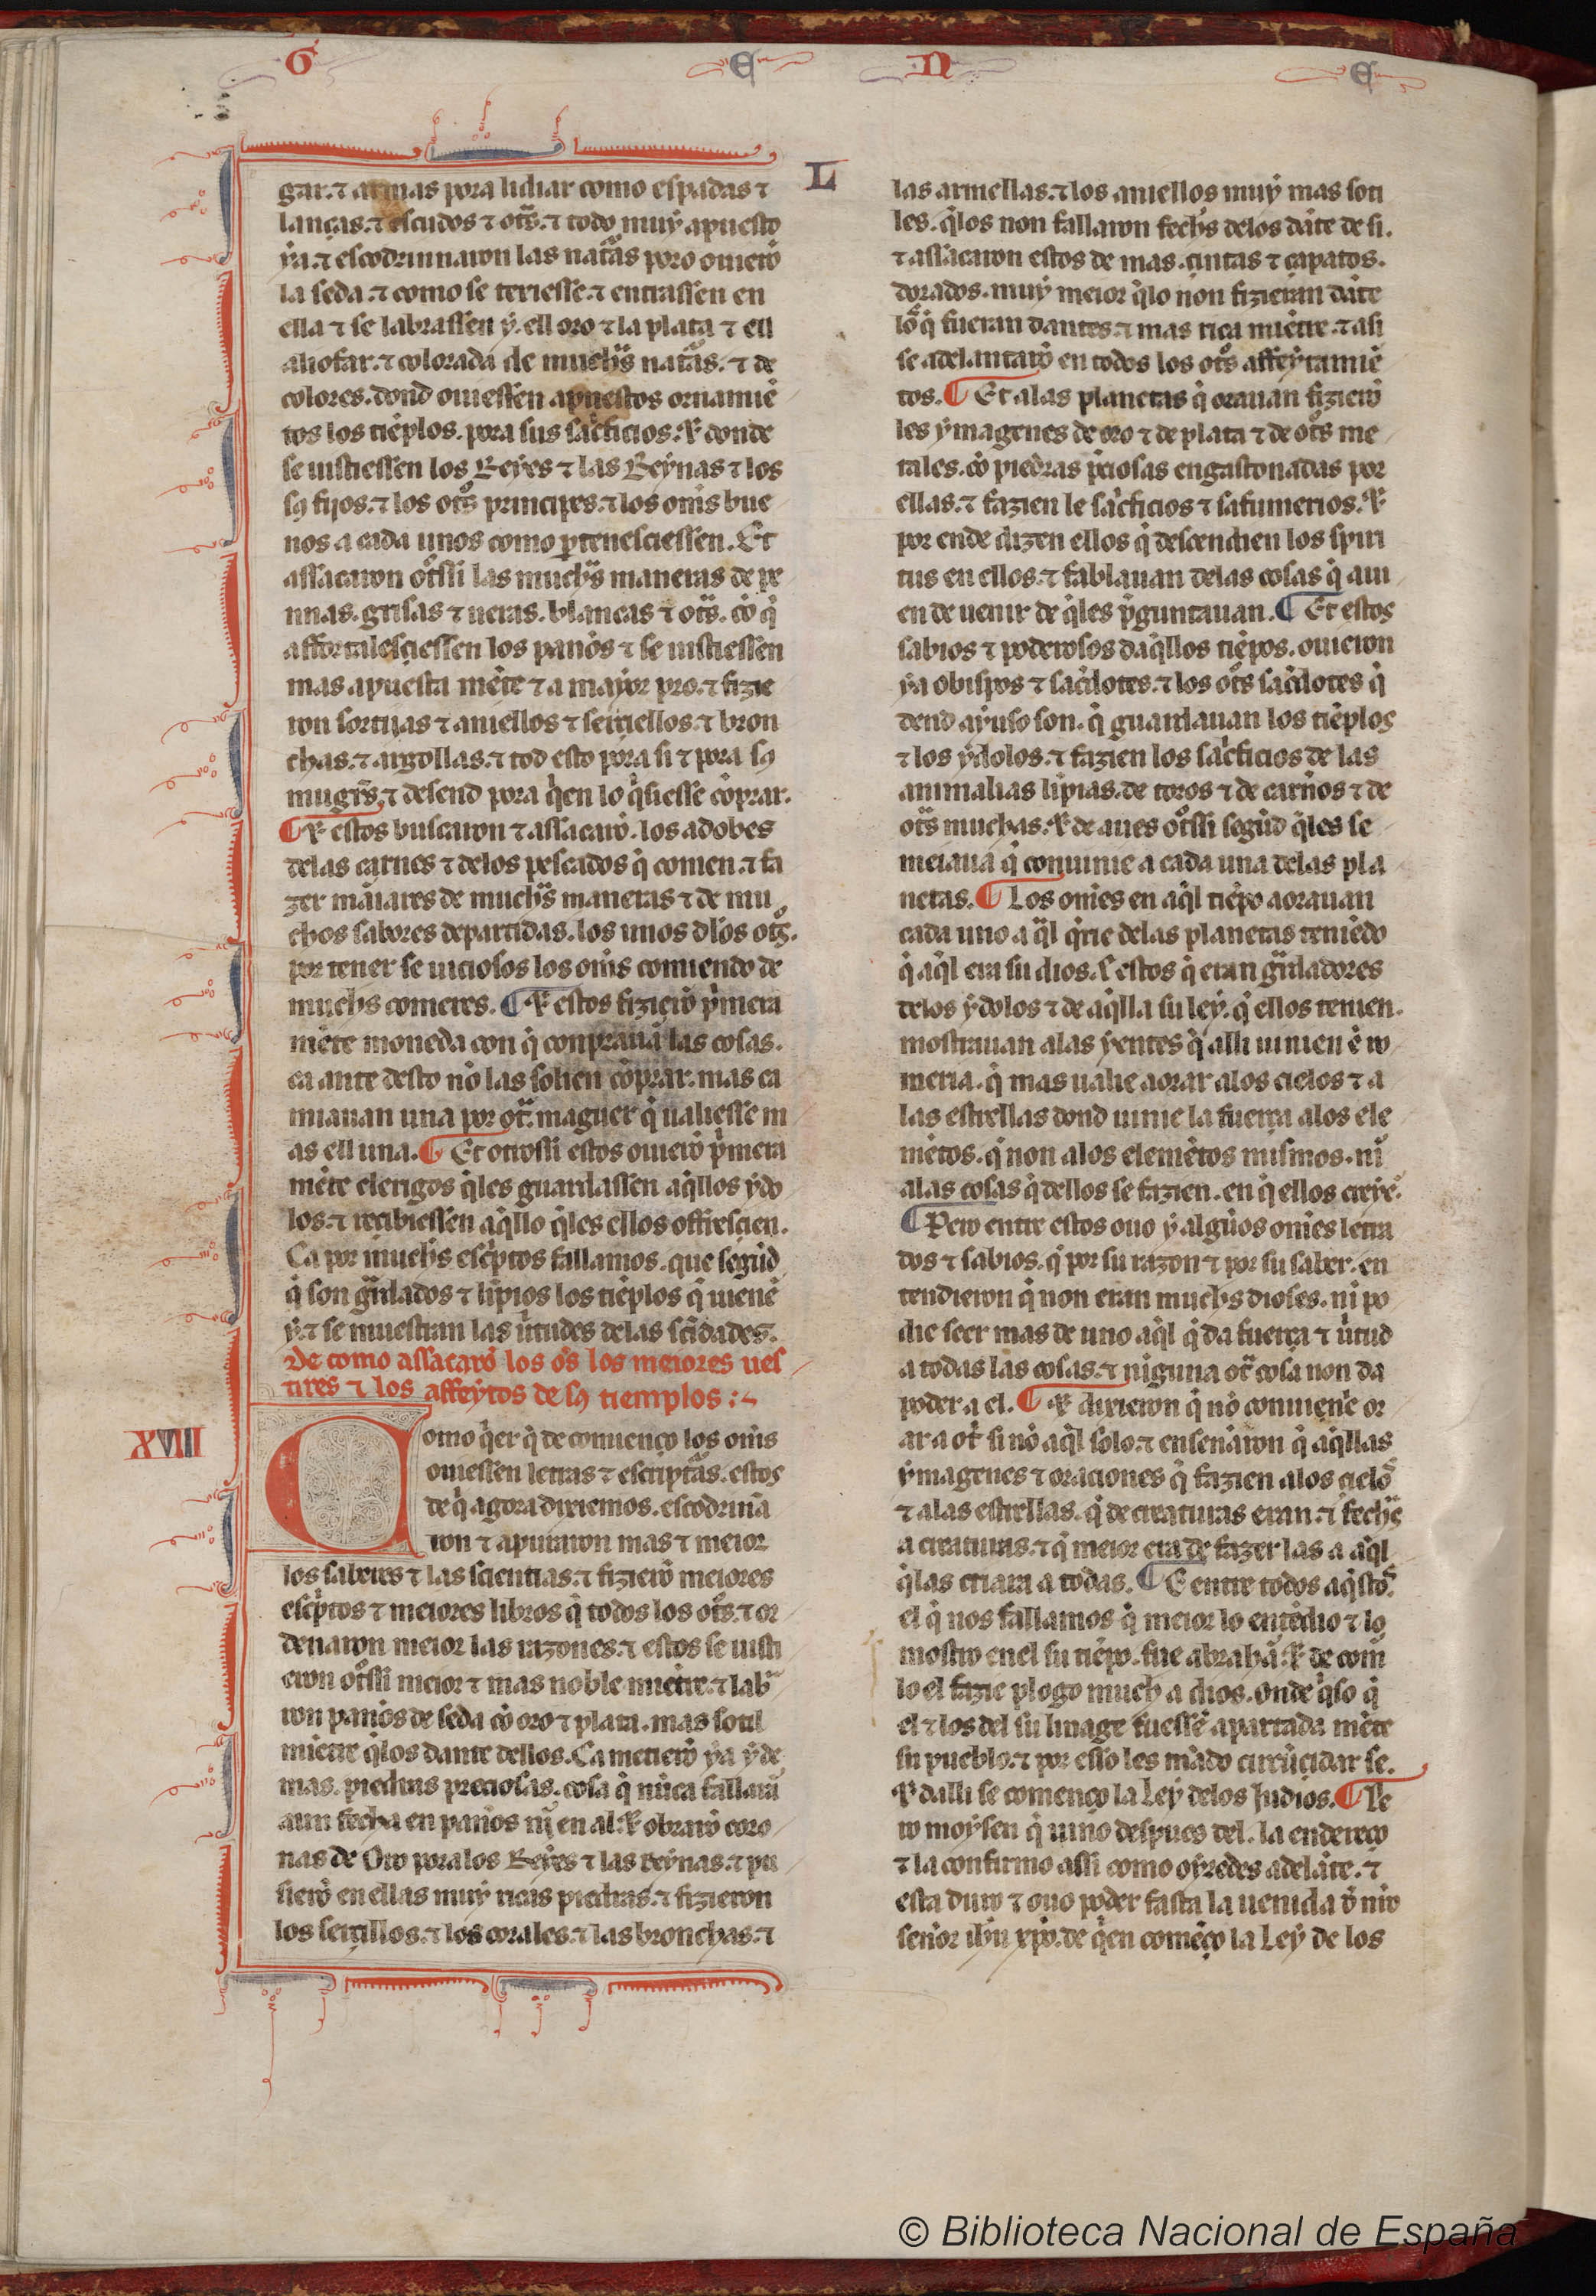 G E N E
L
gar. ⁊ armas pora lidiar como espadas ⁊
lanças. ⁊ escudos ⁊ ot̃s. ⁊ todo muy apuesto
ya. ⁊ escodrinnaron las nat̃as poro ouierõ
la seda. ⁊ como se texiesse. ⁊ entrassen en
ella ⁊ se labrassen y. ell oro ⁊ la plata ⁊ ell
aliofar. ⁊ colorada de much̃s nat̃as. ⁊ de
colores. dond ouiessen apuestos ornamiẽ
tos los tiẽplos. pora sus sac̃ficios. ⁊ donde
se uistiessen los Reyes ⁊ las Reynas ⁊ los
sꝯ fijos. ⁊ los ot̃s principes. ⁊ los om̃s bue
nos a cada unos como ꝑtenesciessen. Et
assacaron ot̃ssi las much̃s maneras de pe
nnas. grisas ⁊ ueras. blancas ⁊ ot̃s. cõ q̃
affortalesciessen los panos ⁊ se uistiessen
mas apuesta miẽte ⁊ a mayor pro. ⁊ fizie
ron sortijas ⁊ aniellos ⁊ serciellos. ⁊ bron
chas. ⁊ argollas. ⁊ tod esto pora si ⁊ pora sꝯ
mugr̃s. ⁊ desend pora q̃en lo q̃siesse cõprar.
¶ ⁊ estos buscaron ⁊ assacarõ. los adobes
delas carnes ⁊ delos pescados q̃ comen. ⁊ fa
zer mãiares de much̃s maneras ⁊ de mu
chos sabores departidas. los unos dlos ot̃s.
por tener se uiciosos los om̃s comiendo de
muchs comeres. ¶ ⁊ estos fizierõ p̃mera
miẽte moneda con q̃ conprauã las cosas.
ca ante desto nõ las solien cõprar. mas ca
miauan una por ot̃. maguer q̃ ualiesse m
as ell una. ¶ Et otrossi estos ouierõ p̃mera
miẽte clerigos q̃les guardassen aq̃llos ydo
los. ⁊ recibiessen aq̃llo q̃les ellos offrescien.
Ca por muchs esc̃ptos fallamos. que segũd
q̃ son g̃rdados ⁊ lĩpios los tiẽplos q̃ uienẽ
y. ⁊ se muestran las ũtudes delas sc̃idades.
De como assacarõ los os̃ los meiores ues
tires ⁊ los affeytos de sꝯ tiemplos :~
XVIII
Como q̃er q̃ de comienço los om̃s
ouiessen letras ⁊ escriptãs. estos
de q̃ agora dixiemos. escodrinã
ron ⁊ apuraron mas ⁊ meior
los saberes ⁊ las sciencias. ⁊ fizierõ meiores
esc̃ptos ⁊ meiores libros q̃ todos los ot̃s. ⁊ or
denaron meior las razones. ⁊ estos se uisti
eron ot̃ssi meior ⁊ mas noble miẽtre. ⁊ labr̃
ron panos de seda cõ oro ⁊ plata. mas sotil
miẽtre q̃los dante dellos. Ca metierõ ya y de
mas. piedras preciosas. cosa q̃ nũca fallarã
aun fecha en panos nĩ en al. ⁊ obrarõ coro
nas de Oro poralos Reyes ⁊ las reynas. ⁊ pu
sierõ en ellas muy ricas piedras. ⁊ fizieron
los sercillos. ⁊ los corales. ⁊ las bronchas. ⁊
las armellas. ⁊ los aniellos muy mas soti
les. q̃los non fallaron fechs delos dãte de si.
⁊ assacaron estos de mas. cintas ⁊ çapatos.
dorados. muy meior q̃lo non fizieran dãte
lõ q̃ fueran dantes. ⁊ mas rica miẽtre. ⁊ asi
se adelantarõ en todos los ot̃s affeytamiẽ
tos. ¶ Et alas planetas q̃ orauan fizierõ
les ymagenes de oro ⁊ de plata ⁊ de ot̃s me
tales. cõ piedras p̃ciosas engastonadas por
ellas. ⁊ fazien le sac̃ficios ⁊ safumerios. ⁊
por ende dizen ellos q̃ descendien los spiri
tus en ellos. ⁊ fablauan delas cosas q̃ aui
en de uenir de q̃les p̃guntauan. ¶ Et estos
sabios ⁊ poderosos daq̃llos tiẽpos. ouieron
ya obispos ⁊ sac̃dotes. ⁊ los ot̃s sac̃dotes q̃
dend ayuso son. q̃ guardauan los tiẽplos
⁊ los ydolos. ⁊ fazien los sac̃ficios de las
animalias lĩpias. de toros ⁊ de carnos ⁊ de
ot̃s muchas. ⁊ de aues ot̃ssi segũd q̃les se
meiaua q̃ conuinie a cada una delas pla
netas. ¶ Los omẽs en aq̃l tiẽpo aorauan
cada uno a q̃l q̃rie delas planetas teniẽdo
q̃ aq̃l era su dios. ⁊ estos q̃ eran g̃rdadores
delos ydolos ⁊ de aq̃lla su ley. q̃ ellos tenien.
mostrauan alas yentes q̃ alli uinien ẽ ro
meria. q̃ mas ualie aorar alos cielos ⁊ a
las estrellas dond uinie la fuerça alos ele
mẽtos. q̃ non alos elemẽtos mismos. nĩ
alas cosas q̃ dellos se fazien. en q̃ ellos creyẽ.
¶ Pero entre estos ouo y algũos omẽs letra
dos ⁊ sabios. q̃ por su razon ⁊ por su saber. en
tendieron q̃ non eran muchs dioses. nĩ po
die seer mas de uno aq̃l q̃ da fuerça ⁊ ũtud
a todas las cosas. ⁊ niguna ot̃ cosa non da
poder a el. ¶ ⁊ dixieron q̃ nõ conuiene or
ar a ot̃ si nõ aq̃l solo. ⁊ ensenaron q̃ aq̃llas
ymagenes ⁊ oraciones q̃ fazien alos cielõs
⁊ alas estrellas. q̃ de creaturas eran. ⁊ fechs
a creaturas. ⁊ q̃ meior era de fazer las a aq̃l
q̃las criara a todas. ¶ E entre todos aq̃stos
el q̃ nos fallamos q̃ meior lo entẽdio ⁊ lo
mostro en el su tiẽpo. fue abrahã. ⁊ de com̃
lo el fazie plogo much a dios. onde q̃so q̃
el ⁊ los del su linage fuessẽ apartada miẽte
su pueblo. ⁊ por esso les mãdo circũcidar se.
⁊ dalli se començo la Ley delos Judios. ¶ Pe
ro moysen q̃ uino despues del. la endereço
⁊ la confirmo assi como oyredes adelãte. ⁊
esta duro ⁊ ouo poder fasta la uenida d̃ nr̃o
senor ihũ xp̃o. de q̃en comẽço la Ley de los
© Biblioteca Nacional de España